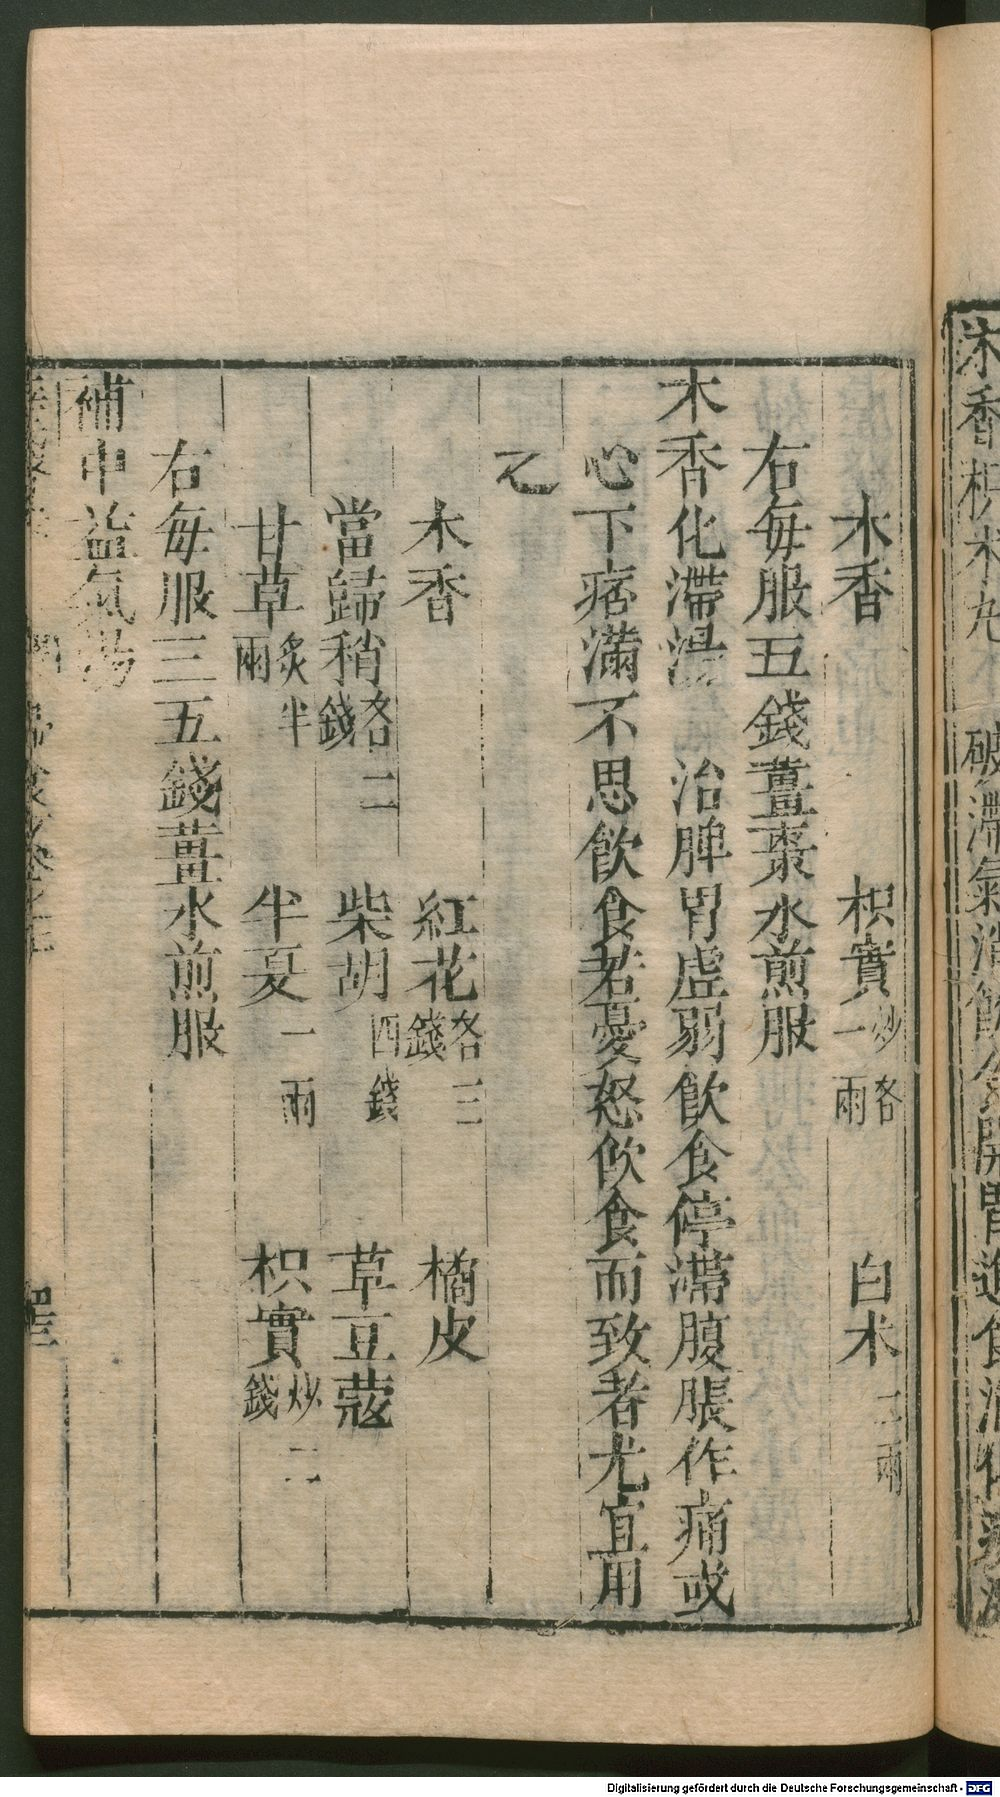 木香枳朮丸 破滯氣消飲食開胃進食
木香 枳實炒各一兩 白朮二兩
右每服五錢薑棗水煎服
木香化滯湯 治脾胃虛弱飲食停滯腹脹作痛或
心下痞滿不思飲食若憂怒飲食而致者尤宜用
之
木香 紅花各三錢 橘皮
當歸稍各二錢 柴胡四錢 草豆蔻
甘草炙半兩 半夏一兩 枳實炒二錢
右每服三五錢薑水煎服
補中益氣湯
Digitalisierung gefördert durch die Deutsche Forschungsgemeinschaft - DFG